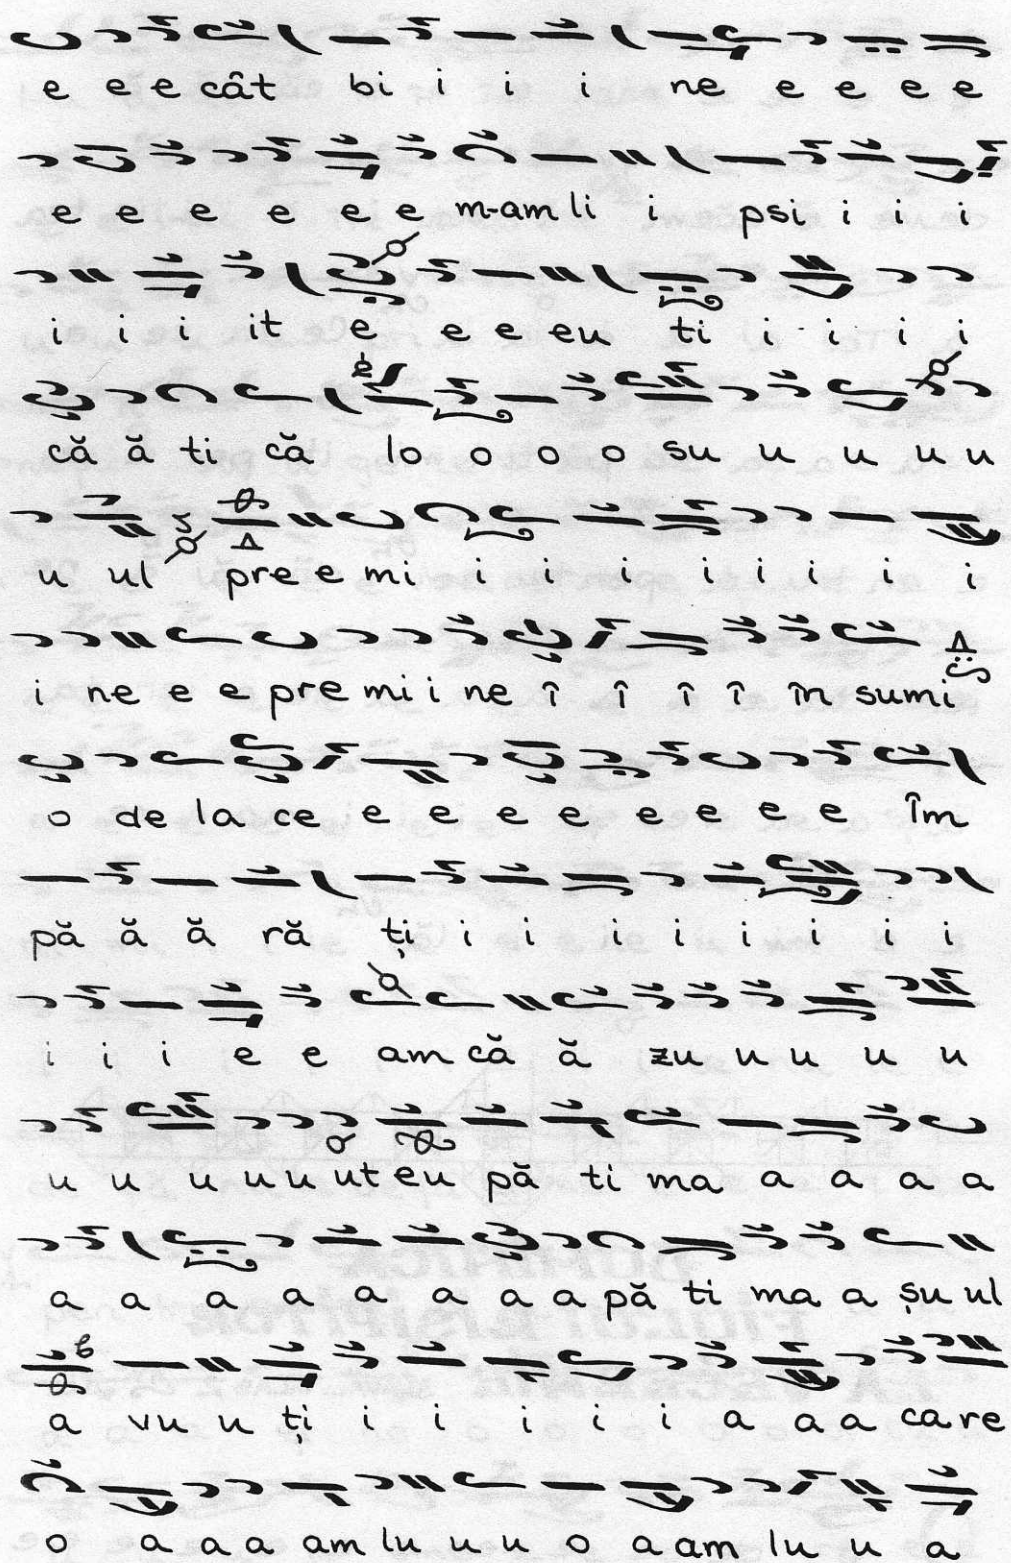 e e e cât bi i i i ne e e e e
e e e e e e m-am li i psi i i i
i i i it e e e eu ti i i i i
că ă ti că lo o o o su u u u u
u ul pre e mi i i i i i i i i
i ne e e pre mi i ne î î î î în sumi
o de la ce e e e e e e e e îm
pă ă ă ră ți i i i i i i i i
i i i e e am că ă zu u u u u
u u u u u ut eu pă ti ma a a a a
a a a a a a a a pă ti ma a șu ul
a vu u ți i i i i i a a a ca re
o a a a am lu u u o a am lu u a